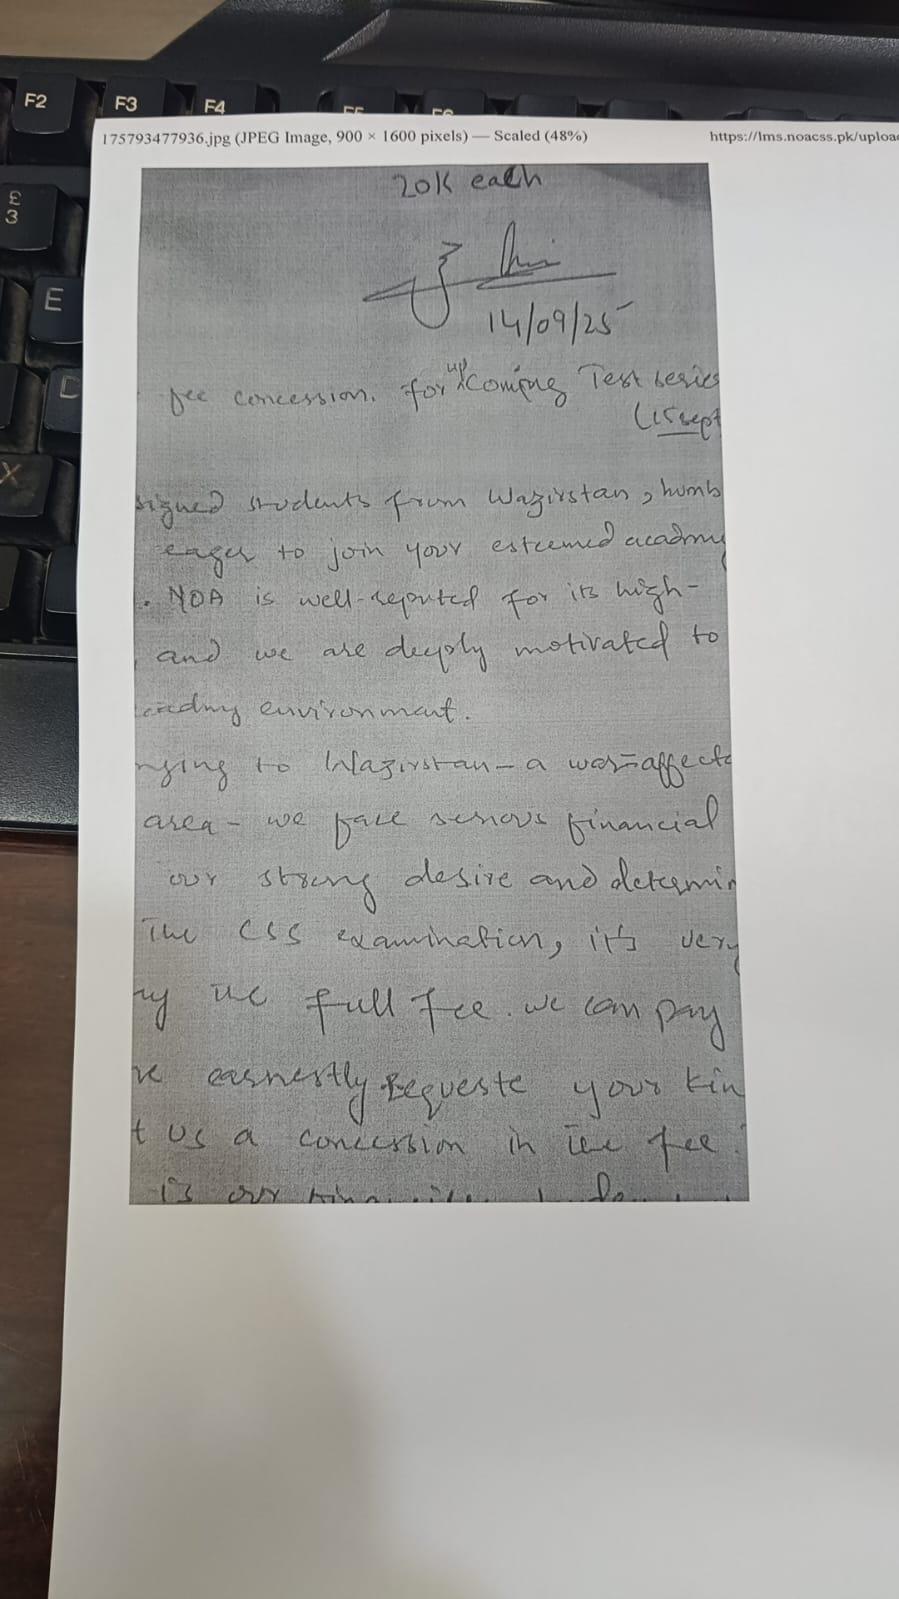 F2 F3 F4
£
3
E
D
X
175793477936.jpg (JPEG Image, 900 × 1600 pixels) — Scaled (48%) https://lms.noacss.pk/uploa
20K each
14/09/25
fee concession. for upcoming Test series
(15 sept
signed students from Wazirstan, humb
eager to join your esteemed acadmy
. NOA is well-reputed for its high-
and we are deeply motivated to
eadmy environment.
nging to Wazirstan - a war-affecte
area - we face serious financial
our strong desire and determin
The CSS examination, it's very
ay the full fee. we can pay
ve earnestly Requeste your kin
t us a concession in the fee.
is our